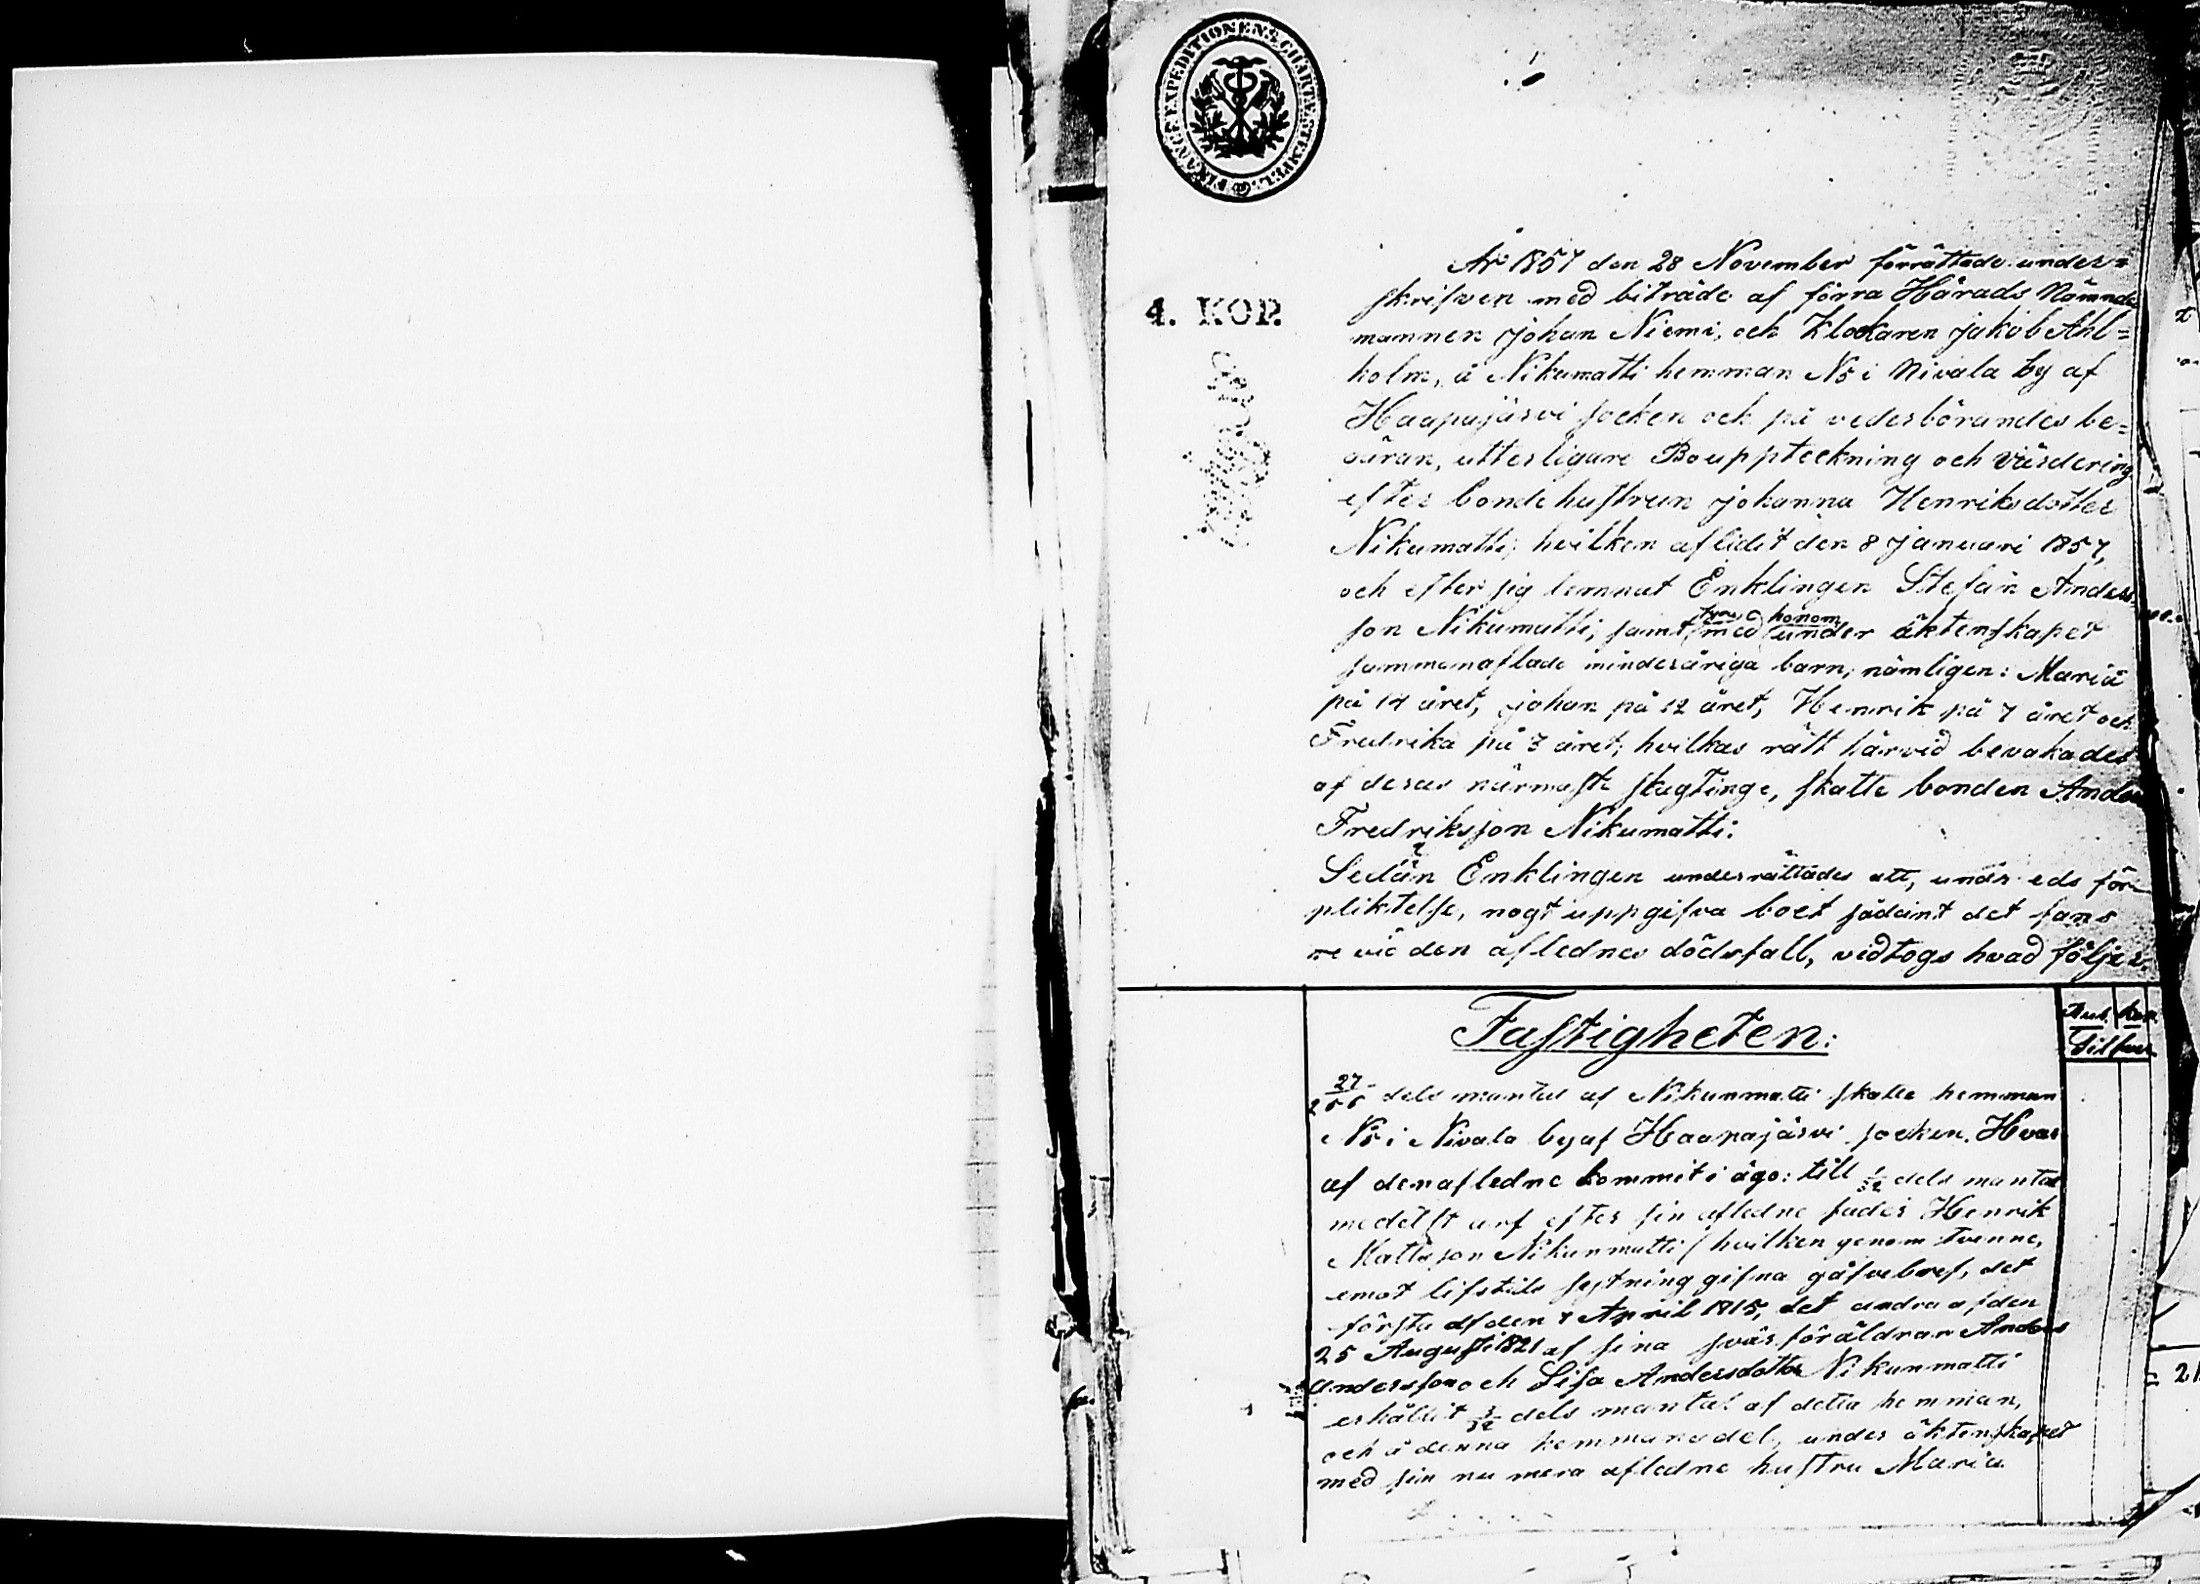 FINANCE EXPEDITIONENS CHARTÆ STEMPEL
4. KOP.
År 1857 den 28 November förrättade under=
skrifven med biträde af förra Härads Nämnde
mannen Johan Niemi, och Klockaren Jakob Ahl=
holm, å Nikumatti hemman N5 i Nivala by af
Haapajärvi socken och på vederbörandes be=
gäran, utterligare Bouppteckning och Värdering
efter bondehustrun Johanna Henriksdotter
Nikumatti; hvilken aflidit den 8 Januari 1857,
och efter sig lemnat Enklingen Stefan Anders
son Nikumatti; samt fyra med honom under äktenskapet
sammanaflade minderåriga barn; nämligen: Maria
på 14 året, Johan på 12 året, Henrik på 7 året och
Fredrika på 3 året; hvilkas rätt härvid bevakades
af deras närmaste skägtinge, skatte bonden Anders
Fredriksson Nikumatti:
Sedan Enklingen underrättades att, under eds för
pliktelse, nogt uppgifva boet sådant det fans
re vid den aflednes dödsfall, vidtogs hvad följer.
Fastigheten:
Rub. Kop.
Silfver
27/256 dels mantal af Nikunmatti skatte hemman
N5 i Nivala by af Haapajärvi socken. Hvar
af den afledne kommit i ägo: till 1/32 dels mantal
medelst arf efter sin afledne fader Henrik
Mattsson Nikunmatti (hvilken genom tvenne,
emot lifstids sytning gifna gåfvobref, det
första af den 8 April 1815, det andra af den
25 Augusti 1821 af sina svärföräldrar Anders
Andersson och Lisa Andersdotter Nikunmatti
erhållit 3/32 dels mantal af detta hemman,
och å denna hemmansdel, under äktenskapet
med sin nu mera afledne hustru Maria